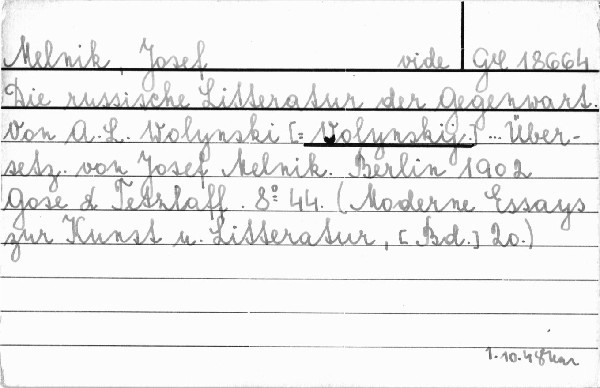 Melnik, Josef vide GYL 18664
Die russische Litteratur der Gegenwart.
Von A.L. Wolynski [= Volynskij.] ... Über-
setz. von Josef Melnik. Berlin 1902
Gose & Tetzlaff. 8° 44. (Moderne Essays
zur Kunst u. Litteratur, [Bd.] 20.)
1.10.48